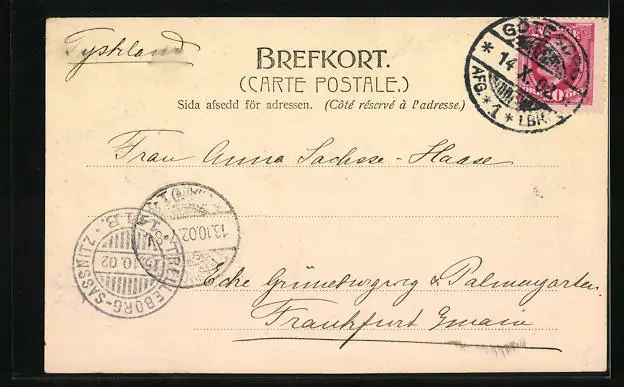 Tyskland
BREFKORT.
(CARTE POSTALE.)
Sida afsedd för adressen. (Côté réservé à l'adresse.)
GÖTEBORG
* 14 X. 02
AFG. * 1 * 1.BR.
Frau Anna Sachsse-Haase
TRELLEBORG-SASSNITZ
10.02
10.02
Ecke Grüneburgweg & Palmengarten
Frankfurt a main